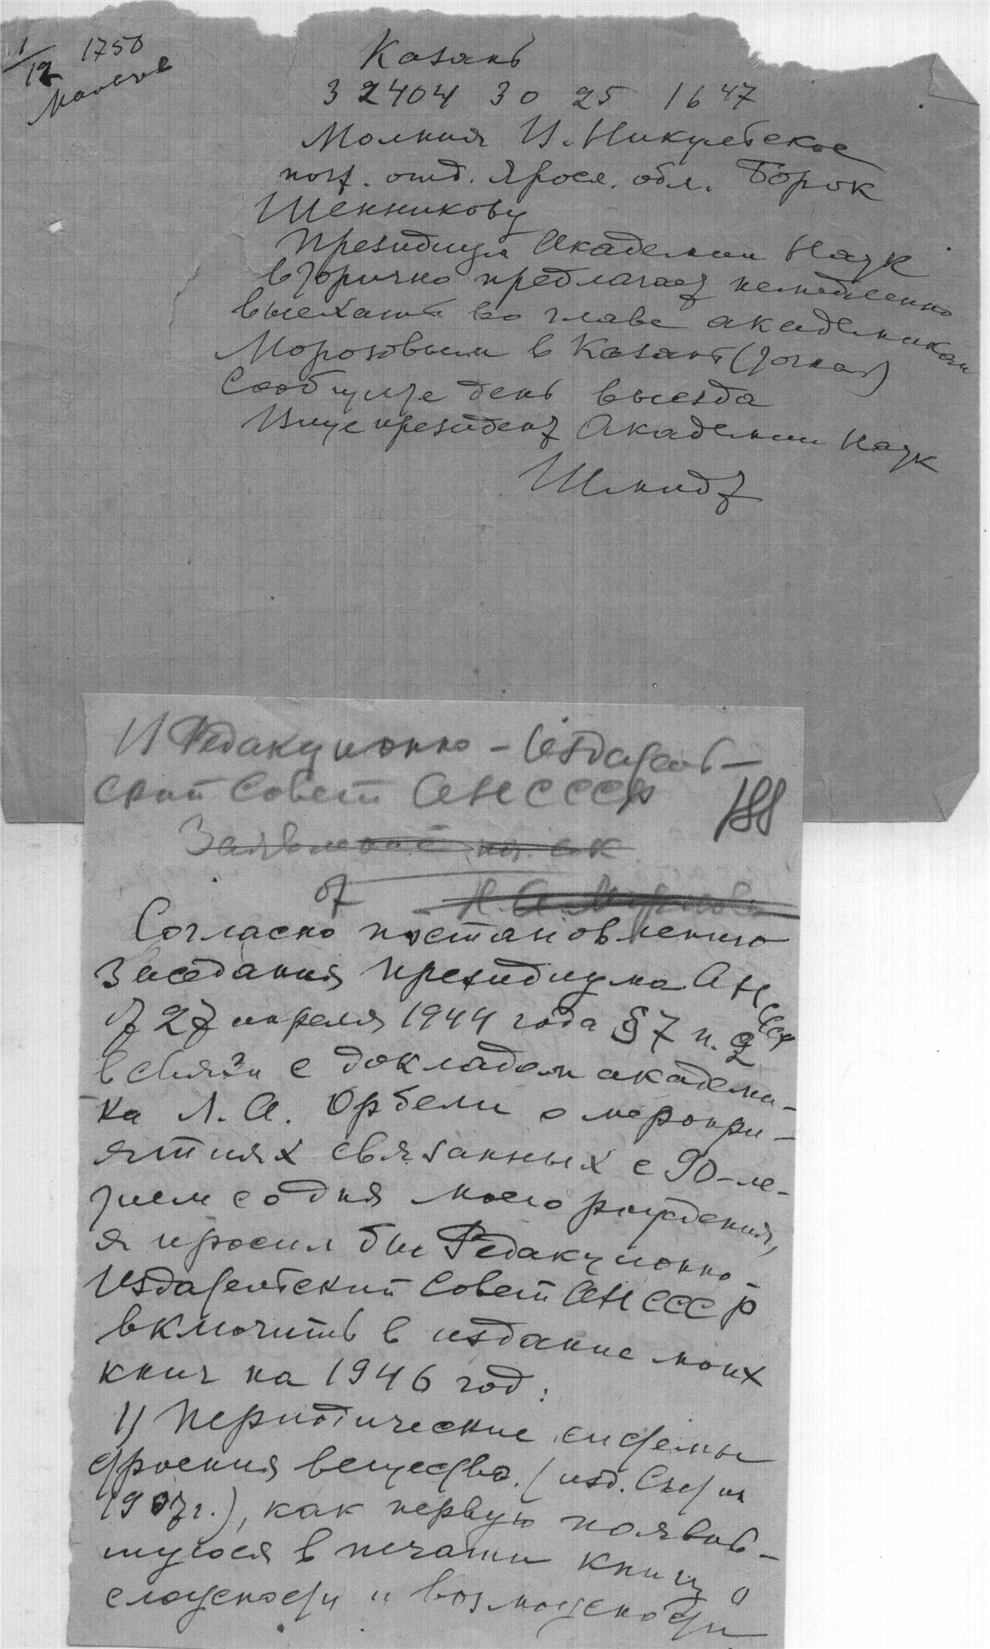 1/12 1750
Казань
3 2404 30 25 16 47
Молния И. Никульское
почт. отд. Яросл. обл. Борок
Шенникову
Президиум Академии Наук
вторично предлагает немедленно
выехать во главе академиком
Морозовым в Казань (точка)
Сообщите день выезда
Вицепрезидент Академии Наук
Шмидт
В Редакционно-Издатель-
ский Совет АН СССР
188
от Н. А. Морозова
Согласно постановлению
Заседания президиума АН СССР
от 27 апреля 1944 года §7 п. 2
в связи с докладом академи-
ка Л. А. Орбели о меропри-
ятиях связанных с 90-ле-
тием со дня моего рождения,
я просил бы Редакционно-
Издательский Совет АН СССР
включить в издание моих
книг на 1946 год:
1) Периодические системы
строения вещества. (изд. Сытин
1907 г.), как первую появив-
шуюся в печати книгу о
сложности и возможности